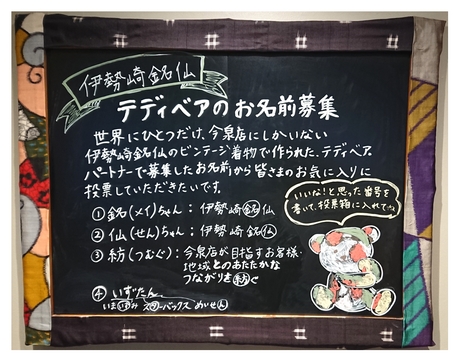 伊勢崎銘仙
テディベアのお名前募集
世界にひとつだけ、今泉店にしかいない
伊勢崎銘仙のビンテージ着物で作られた、テディベア。
パートナーで募集したお名前から皆さまのお気に入りに
投票していただきたいです。
①銘(メイ)ちゃん：伊勢崎銘仙
②仙(せん)ちゃん：伊勢崎銘仙
③紡(つむぐ)：今泉店が目指すお客様・
地域とのあたたかな
つながりを紡ぐ
④いずたん
いまいずみ スターバックス めいせん
いいな！と思った番号を
書いて、投票箱に入れてね